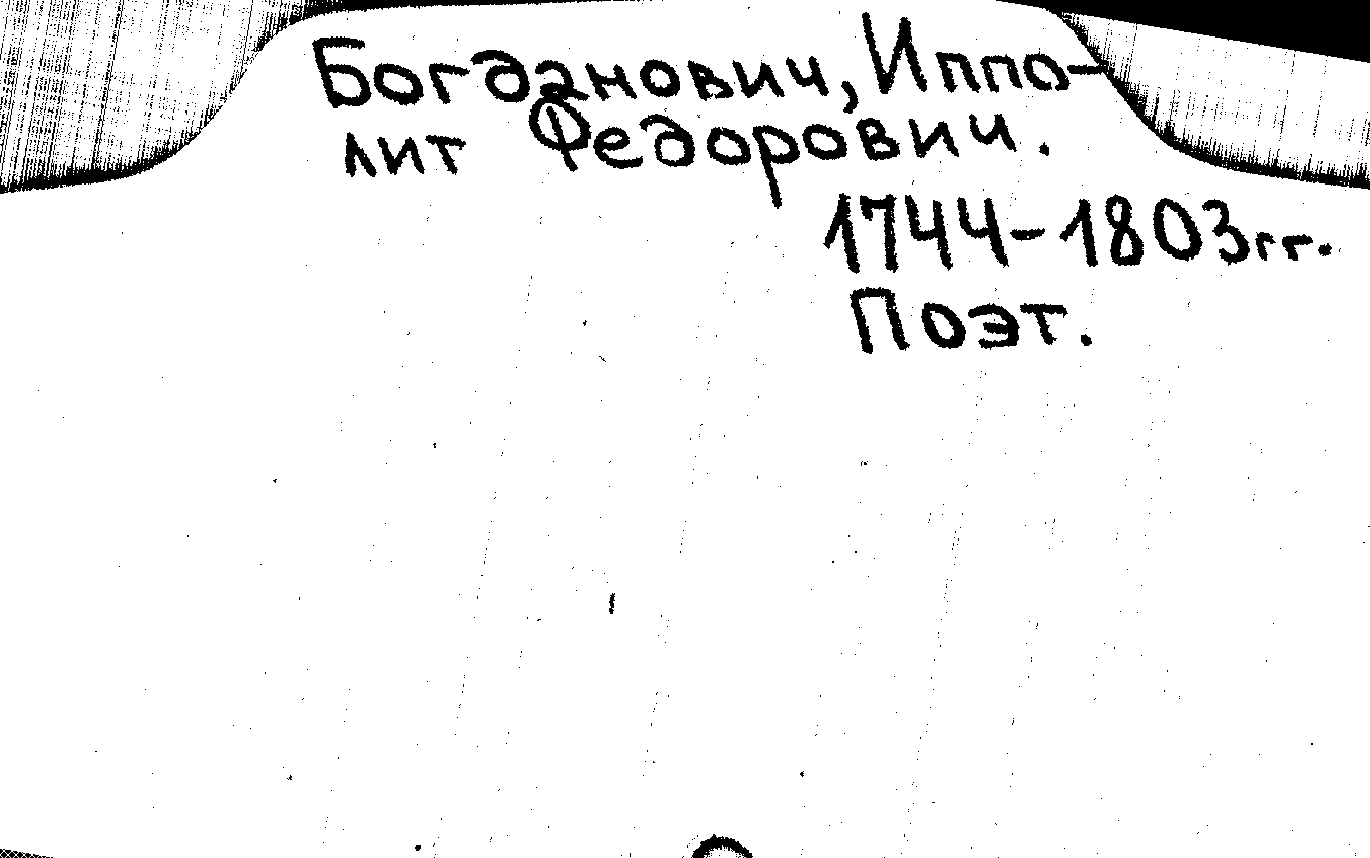 Богданович, Иппо-
лит Федорович.
1744-1803гг.
Поэт.